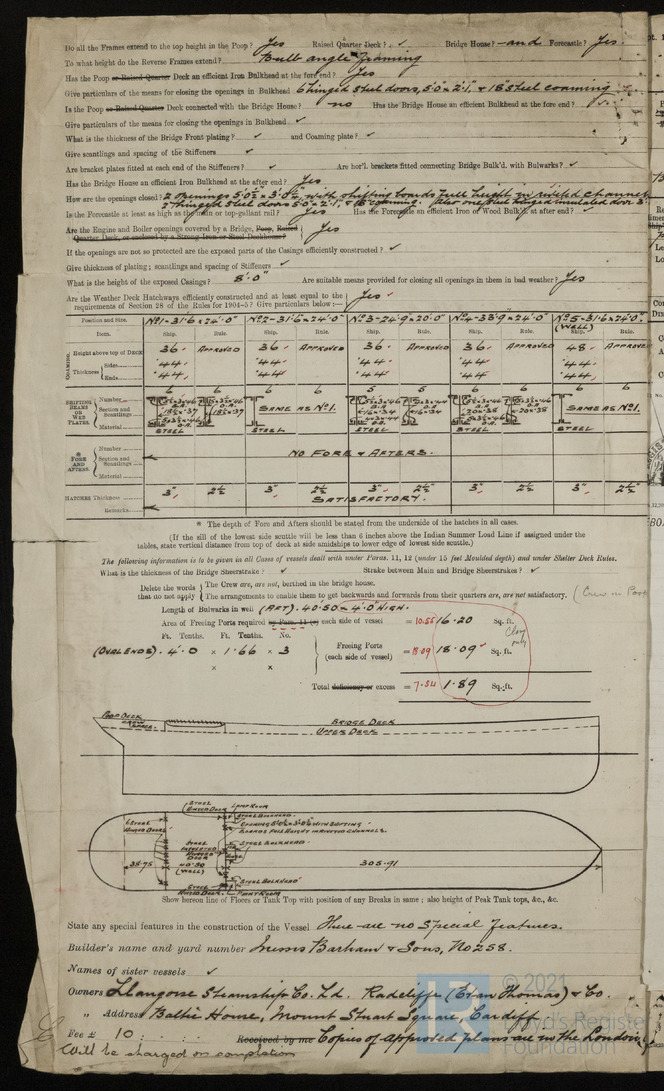 Do all the Frames extend to the top height in the Poop? Yes Raised Quarter Deck? ✓ Bridge House? - and Forecastle? Yes.
To what height do the Reverse Frames extend? Bulb angle framing
Has the Poop or Raised Quarter Deck an efficient Iron Bulkhead at the fore end? Yes
Give particulars of the means for closing the openings in Bulkhead 6 hinged steel doors, 5'0" x 2'1", & 18" steel coaming
Is the Poop or Raised Quarter Deck connected with the Bridge House? no Has the Bridge House an efficient Bulkhead at the fore end?
Give particulars of the means for closing the openings in Bulkhead ✓
What is the thickness of the Bridge Front plating? ✓ and Coaming plate? ✓
Give scantlings and spacing of the Stiffeners ✓
Are bracket plates fitted at each end of the Stiffeners? ✓ Are hor'l. brackets fitted connecting Bridge Bulk'd. with Bulwarks? ✓
Has the Bridge House an efficient Iron Bulkhead at the after end? Yes
How are the openings closed? 2 openings 5'0½" x 3'0½", with shifting boards full height in riveted channels
2 hinged steel doors 5'0" x 2'1", & 18" coaming. Also one steel hinged insulated door
Is the Forecastle at least as high as the main or top-gallant rail? Yes Has the Forecastle an efficient Iron or Wood Bulk'd. at after end? ✓
Are the Engine and Boiler openings covered by a Bridge, Poop, Raised
Quarter Deck, or enclosed by a Strong Iron or Steel Deckhouse? Yes
If the openings are not so protected are the exposed parts of the Casings efficiently constructed? ✓
Give thickness of plating; scantlings and spacing of Stiffeners ✓
What is the height of the exposed Casings? 8'.0" Are suitable means provided for closing all openings in them in bad weather? Yes
Are the Weather Deck Hatchways efficiently constructed and at least equal to the
requirements of Section 28 of the Rules for 1904-5? Give particulars below:— Yes
Position and Size. No1-31'.6 x 24'.0" No2-31'.6 x 24'.0" No3-24'.9 x 20'.0" No4-33'.9 x 24'.0" No5-31'.6 x 24'.0"
(WELL)
Item. Ship. Rule. Ship. Rule. Ship. Rule. Ship. Rule. Ship. Rule.
COAMING. Height above top of DECK 36" APPROVED 36" APPROVED 36" APPROVED 36" APPROVED 48" APPROVED
Thickness Sides .44 .44 .44 .44 .44
Ends .44 .44 .44 .44 .44
SHIFTING BEAMS OR WEB PLATES. Number 6 6 6 6 5 5 6 6 6 6
Section and Scantlings SAME AS No1. SAME AS No1.
Material STEEL STEEL STEEL STEEL STEEL
* FORE AND AFTERS. Number
Section and Scantlings NO FORE & AFTERS.
Material
HATCHES Thickness 3" 2½ 3" 2½ 3" 2½ 3" 2½ 3" 2½
Remarks SATISFACTORY.
* The depth of Fore and Afters should be stated from the underside of the hatches in all cases.
(If the sill of the lowest side scuttle will be less than 6 inches above the Indian Summer Load Line if assigned under the
tables, state vertical distance from top of deck at side amidships to lower edge of lowest side scuttle.)
The following information is to be given in all Cases of Vessels dealt with under Paras. 11, 12 (under 15 feet Moulded depth) and under Shelter Deck Rules.
What is the thickness of the Bridge Sheerstrake? ✓ Strake between Main and Bridge Sheerstrakes? ✓
Delete the words that do not apply The Crew are, are not, berthed in the bridge house.
The arrangements to enable them to get backwards and forwards from their quarters are, are not, satisfactory. (Crew in Poop
Length of Bulwarks in well (AFT). 40.50 x 4'.0" HIGH.
Area of Freeing Ports required by Para. 11 (e) each side of vessel = 10.55 16.20 Sq. ft.
Ft. Tenths. Ft. Tenths. No.
(OVAL ENDS). 4.0 x 1.66 x 3 Freeing Ports (each side of vessel) = 18.09 18.09 Sq. ft.
x x
Total deficiency or excess = 7.54 1.89 Sq. ft.
POOP DECK
CREW
BRIDGE DECK
UPPER DECK
STEEL HINGED DOOR
LAMP ROOM
6 STEEL HINGED DOORS
STEEL BULKHEAD.
OPENING 5'0½" x 3'0½" WITH SHIFTING
BOARDS FULL HEIGHT IN RIVETED CHANNELS.
STEEL INSULATED HINGED DOOR
STEEL BULKHEAD.
38.75
40.50
(WELL)
305.91
STEEL BULKHEAD
STEEL HINGED DOOR
PAINT ROOM
Show hereon line of Floors or Tank Top with position of any Breaks in same; also height of Peak Tank tops, &c., &c.
State any special features in the construction of the Vessel There are no special features.
Builder's name and yard number Messrs Barham & Sons, No 258.
Names of sister vessels ✓
Owners Llangorse Steamship Co. Ld. Radcliffe (Evan Thomas) & Co.
" Address Baltic House, Mount Stuart Square, Cardiff
Fee £ 10 : : Received by me Copies of approved plans are in the London
Will be charged on completion
© 2021
Lloyd's Register
Foundation